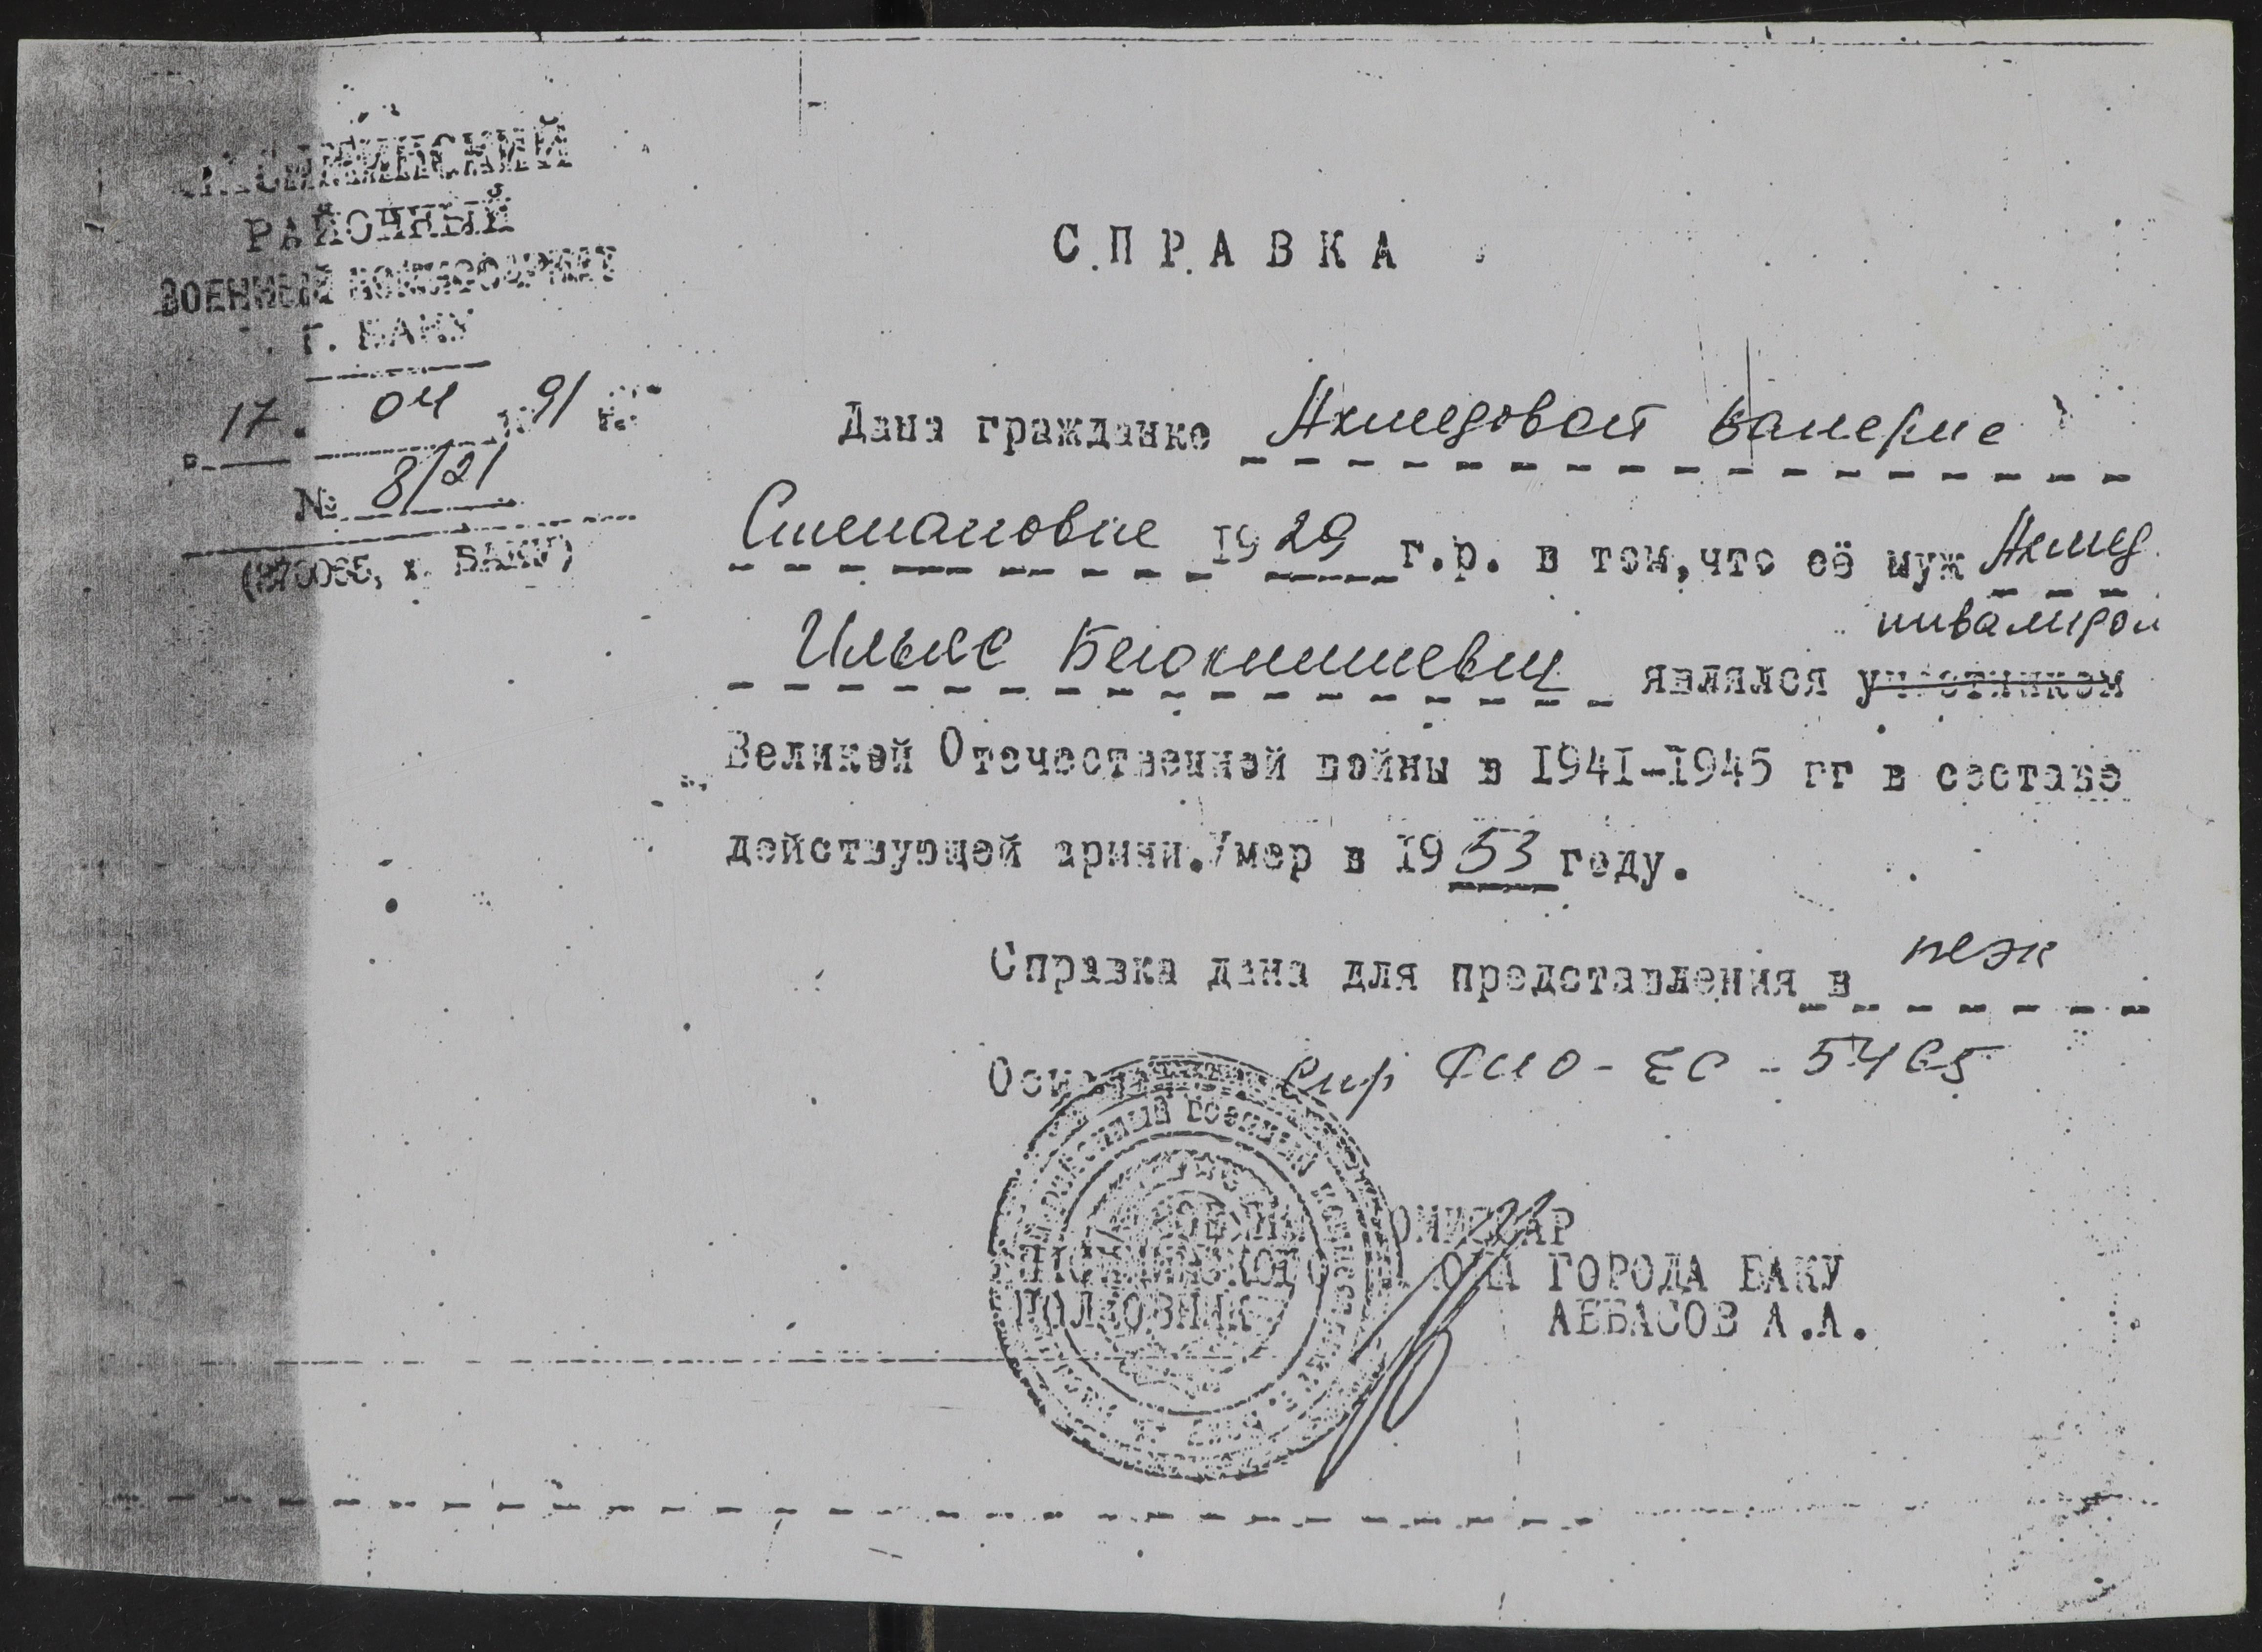 РАЙОННЫЙ
ВОЕННЫЙ КОМИССАРИАТ
Г. БАКУ
17. 04 1991 г.
№ 8/21
(370065, г. БАКУ)
СПРАВКА
Дана гражданке Ахмедовой Валерие
Степановне 1929 г.р. в том, что её муж Ахмед
инвалидом
Ильяс Беюккишиевич являлся участником
Великой Отечественной войны в 1941-1945 гг в составе
действующей армии. Умер в 1953 году.
Справка дана для представления в
ЕС - 5465
КОМИССАР
ГОРОДА БАКУ
ПОЛКОВНИК АББАСОВ А.А.